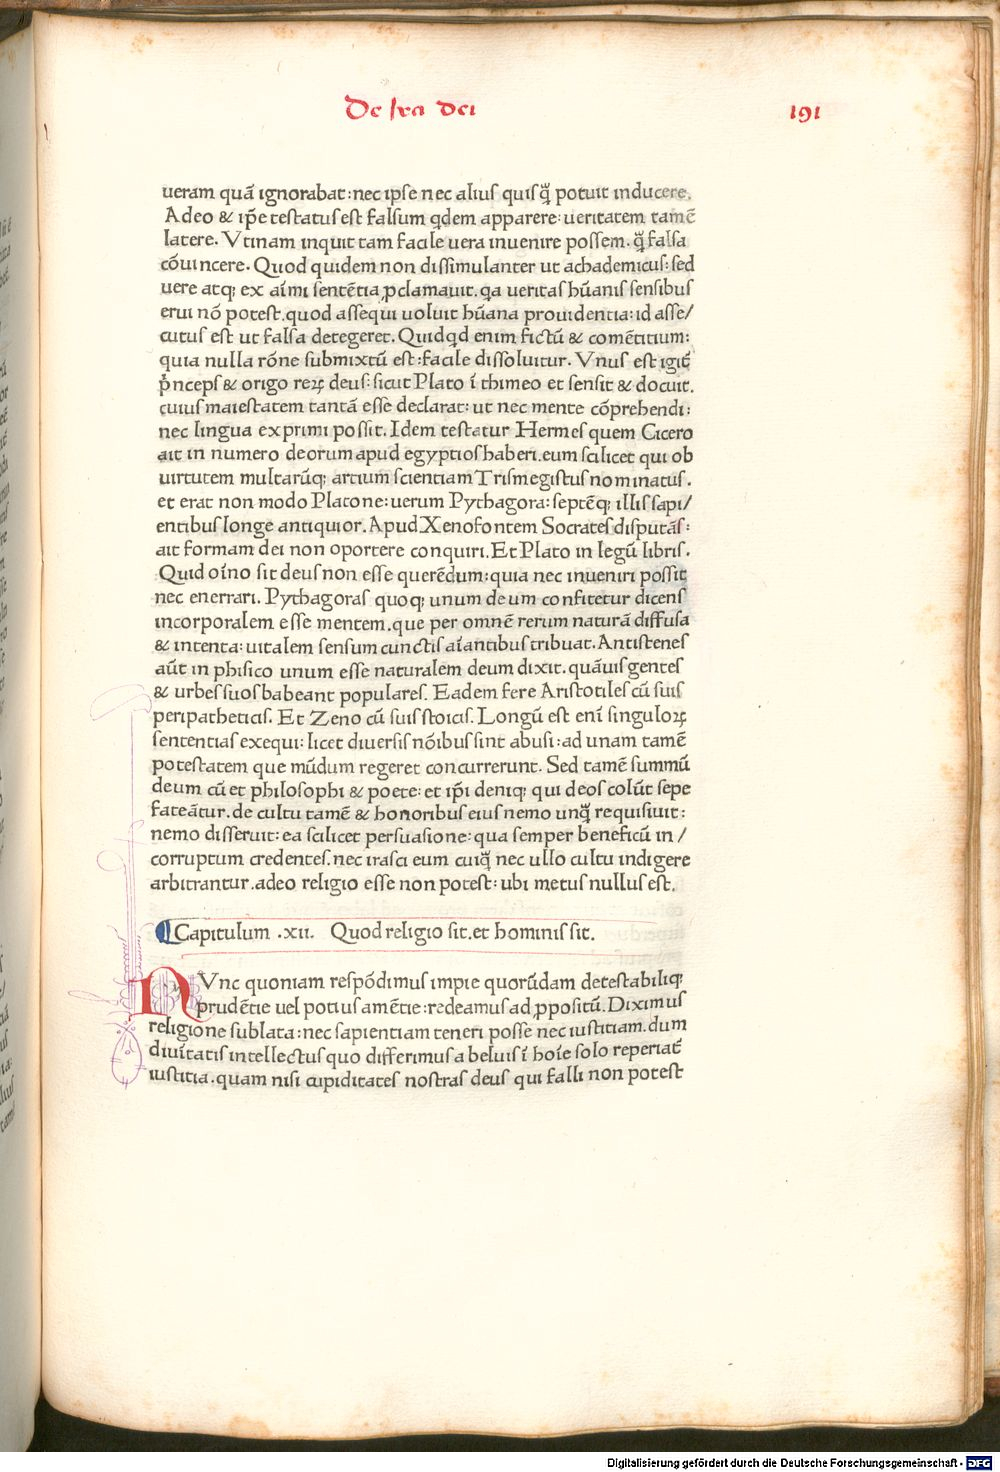 De ira dei 191
ueram quā ignorabat: nec ipſe nec aliuſ quiſq̄̃ potuit inducere.
Adeo & ip̄e teſtatuſ eſt falſum qdem apparere: ueritatem tamē
latere. Vtinam inquit tam facile uera inuenire poſſem. q̄̃ falſa
cōuincere. Quod quidem non diſſimulanter ut achademicuſ: ſed
uere atq; ex aīmi ſentētia ꝓclamauit. qa ueritaſ hūaniſ ſenſibuſ
erui nō poteſt. quod aſſequi uoluit hūana prouidentia: id aſſe/
cutuſ eſt ut falſa detegeret. Quidqd enim fictū & comētitium:
quia nulla rōne ſubmixtū eſt: facile diſſoluitur. Vnuſ eſt igit̄
p̄nceps & origo reꝝ deuſ: ſicut Plato ī thimeo et ſenſit & docuit.
cuiuſ maieſtatem tantā eſſe declarat: ut nec mente cōprehendi:
nec lingua exprimi poſſit. Idem teſtatur Hermeſ quem Cicero
ait in numero deorum apud egyptioſ haberi. eum ſcilicet qui ob
uirtutem multarūq; artium ſcientiam Triſmegiſtuſ nominatuſ.
et erat non modo Platone: uerum Pythagora: ſeptēq; illiſ ſapi/
entibuſ longe antiquior. Apud Xenofontem Socrateſ diſputāſ:
ait formam dei non oportere conquiri. Et Plato in legū libriſ.
Quid oīno ſit deuſ non eſſe querēdum: quia nec inueniri poſſit
nec enerrari. Pythagoraſ quoq; unum deum confitetur dicenſ
incorporalem eſſe mentem. que per omnē rerum naturā diffuſa
& intenta: uitalem ſenſum cunctiſ aīantibuſ tribuat. Antiſteneſ
aūt in phiſico unum eſſe naturalem deum dixit. quāuiſ genteſ
& urbeſ ſuoſ habeant populareſ. Eadem fere Ariſtotileſ cū ſuiſ
peripatheticiſ. Et Zeno cū ſuiſ ſtoiciſ. Longū eſt enī ſinguloꝝ
ſententiaſ exequi: licet diuerſiſ nōibuſ ſint abuſi: ad unam tamē
poteſtatem que mūdum regeret concurrerunt. Sed tamē ſummū
deum cū et philoſophi & poete: et ip̄i deniq; qui deoſ colūt ſepe
fateātur. de cultu tamē & honoribuſ eiuſ nemo unq̄̃ requiſiuit:
nemo diſſeruit: ea ſcilicet perſuaſione: qua ſemper beneficū in/
corruptum credenteſ. nec iraſci eum cuiq̄̃ nec ullo cultu indigere
arbitrantur. adeo religio eſſe non poteſt: ubi metuſ nulluſ eſt.
Capitulum .xii. Quod religio ſit. et hominiſ ſit.
NVnc quoniam reſpōdimuſ impie quorūdam deteſtabiliq;
prudētie uel potiuſ amētie: redeamuſ ad ꝓpoſitū. Diximuſ
religione ſublata: nec ſapientiam teneri poſſe nec iuſtitiam. dum
diuītatiſ intellectuſ quo differimuſ a beluiſ ī hoīe ſolo reperiat̄
iuſtitia. quam niſi cupiditateſ noſtraſ deuſ qui falli non poteſt
Digitalisierung gefördert durch die Deutsche Forschungsgemeinschaft - DFG